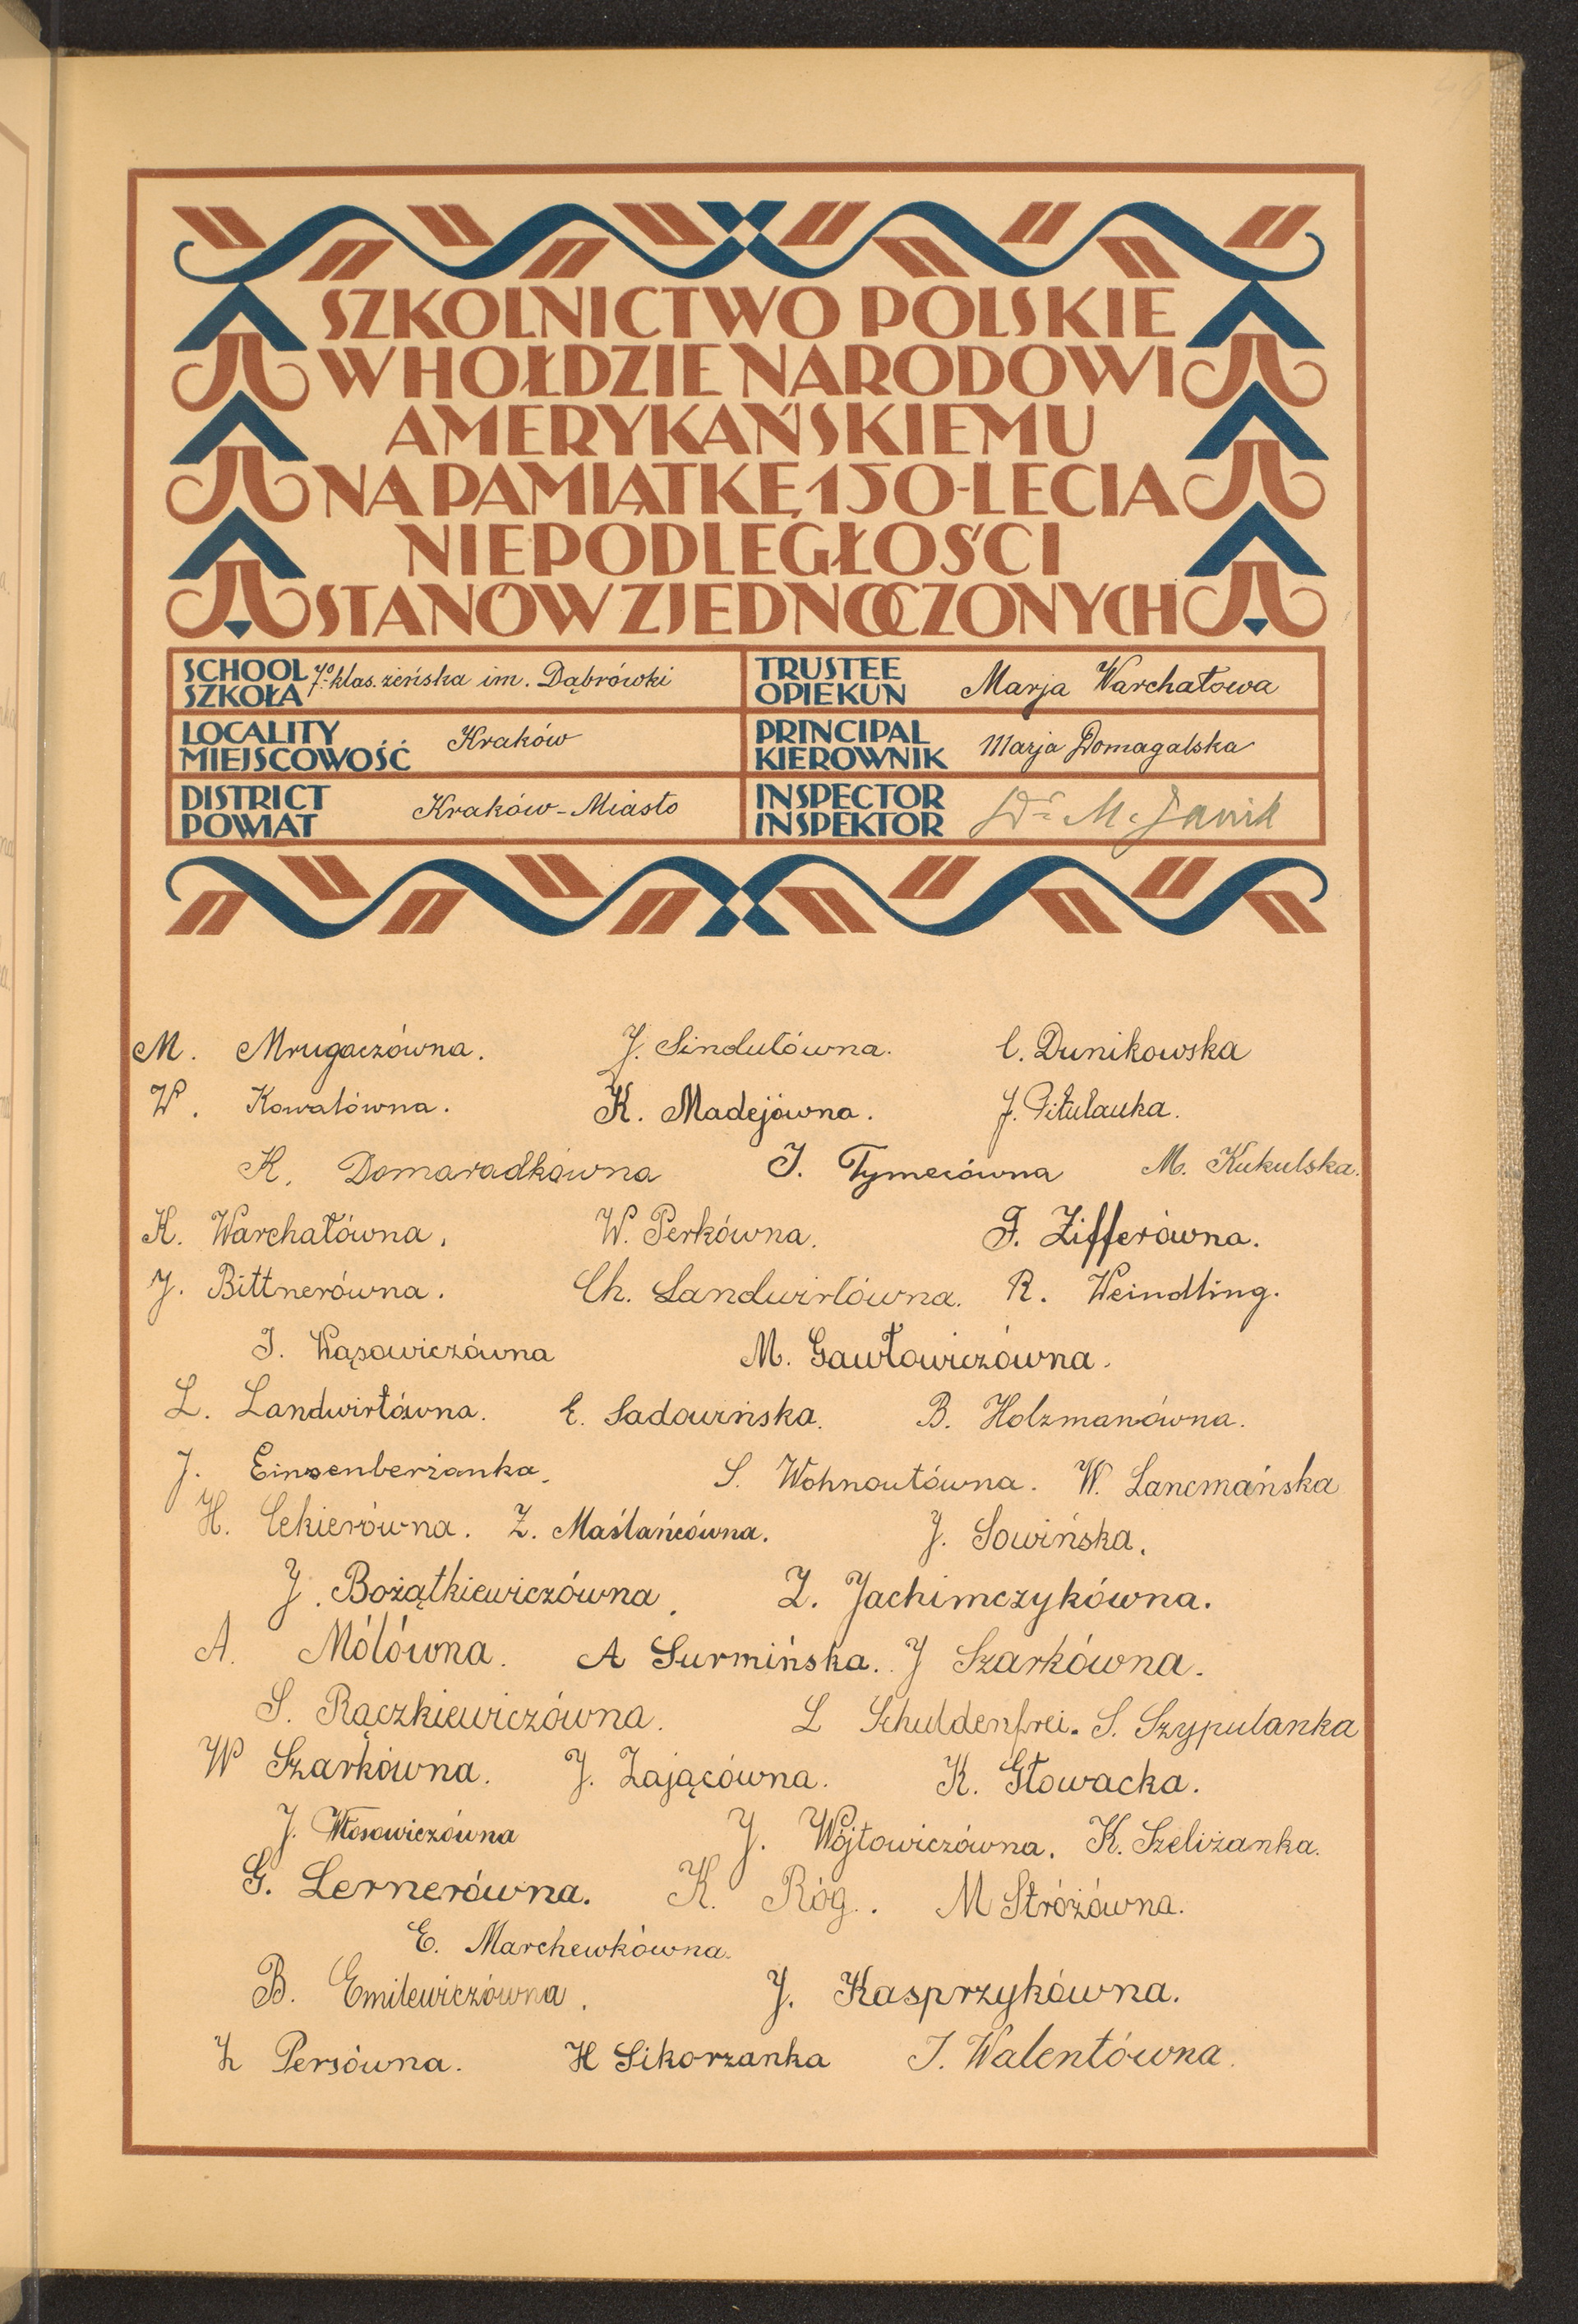 SZKOLNICTWO POLSKIE
W HOŁDZIE NARODOWI
AMERYKAŃSKIEMU
NA PAMIĄTKĘ 150-LECIA
NIEPODLEGŁOŚCI
STANÓW ZJEDNOCZONYCH
SCHOOL SZKOŁA 7º klas. żeńska im. Dąbrówki
TRUSTEE OPIEKUN Marja Warchałowa
LOCALITY MIEJSCOWOŚĆ Kraków
PRINCIPAL KIEROWNIK Marja Domagalska
DISTRICT POWIAT Kraków-Miasto
INSPECTOR INSPEKTOR Dr M. Janik
M. Mrugaczówna. J. Sindutówna. C. Dunikowska
W. Kowalówna. K. Madejówna. J. Pitulanka.
K. Domaradkówna J. Tymecówna M. Kukulska.
K. Warchałówna. W. Perkówna. F. Zifferówna.
J. Bittnerówna. Ch. Landwirtówna. R. Weindling.
J. Wąsowiczówna M. Gawłowiczówna.
L. Landwirtówna. E. Sadowińska. B. Holzmanówna.
J. Einsenberżanka. S. Wohnoutówna. W. Lancmańska
H. Cekierówna. Z. Maślańcówna. J. Sowińska.
J. Bożątkiewiczówna. Z. Jachimczykówna.
A. Mólówna. A Surmińska. J Szarkówna.
S. Rączkiewiczówna. L Schuldenfrei. S. Szypulanka
W Szarkówna. J. Zającówna. K. Głowacka.
J. Włosowiczówna J. Wójtowiczówna. K. Szeliżanka.
G. Lernerówna. K. Róg. M Stróżówna.
E. Marchewkówna.
B. Emilewiczówna. J. Kasprzykówna.
Persówna. H Sikorzanka J. Walentówna.